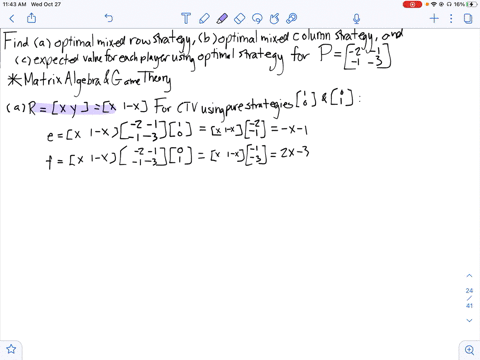 11:43 AM Wed Oct 27
16%
Find (a) optimal mixed row strategy, (b) optimal mixed column strategy, and
(c) expected value for each player using optimal strategy for P = [-2 -1; -1 -3]
* Matrix Algebra & Game Theory
(a) R = [x y] = [x 1-x] For CTV using pure strategies [1; 0] & [0; 1]:
e = [x 1-x] [-2 -1; -1 -3] [1; 0] = [x 1-x] [-2; -1] = -x-1
f = [x 1-x] [-2 -1; -1 -3] [0; 1] = [x 1-x] [-1; -3] = 2x-3
24
/
41